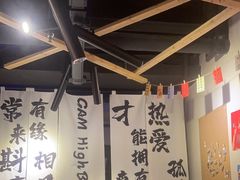 常来斟
有缘相
CAN High B
才能拥有
热爱
孤